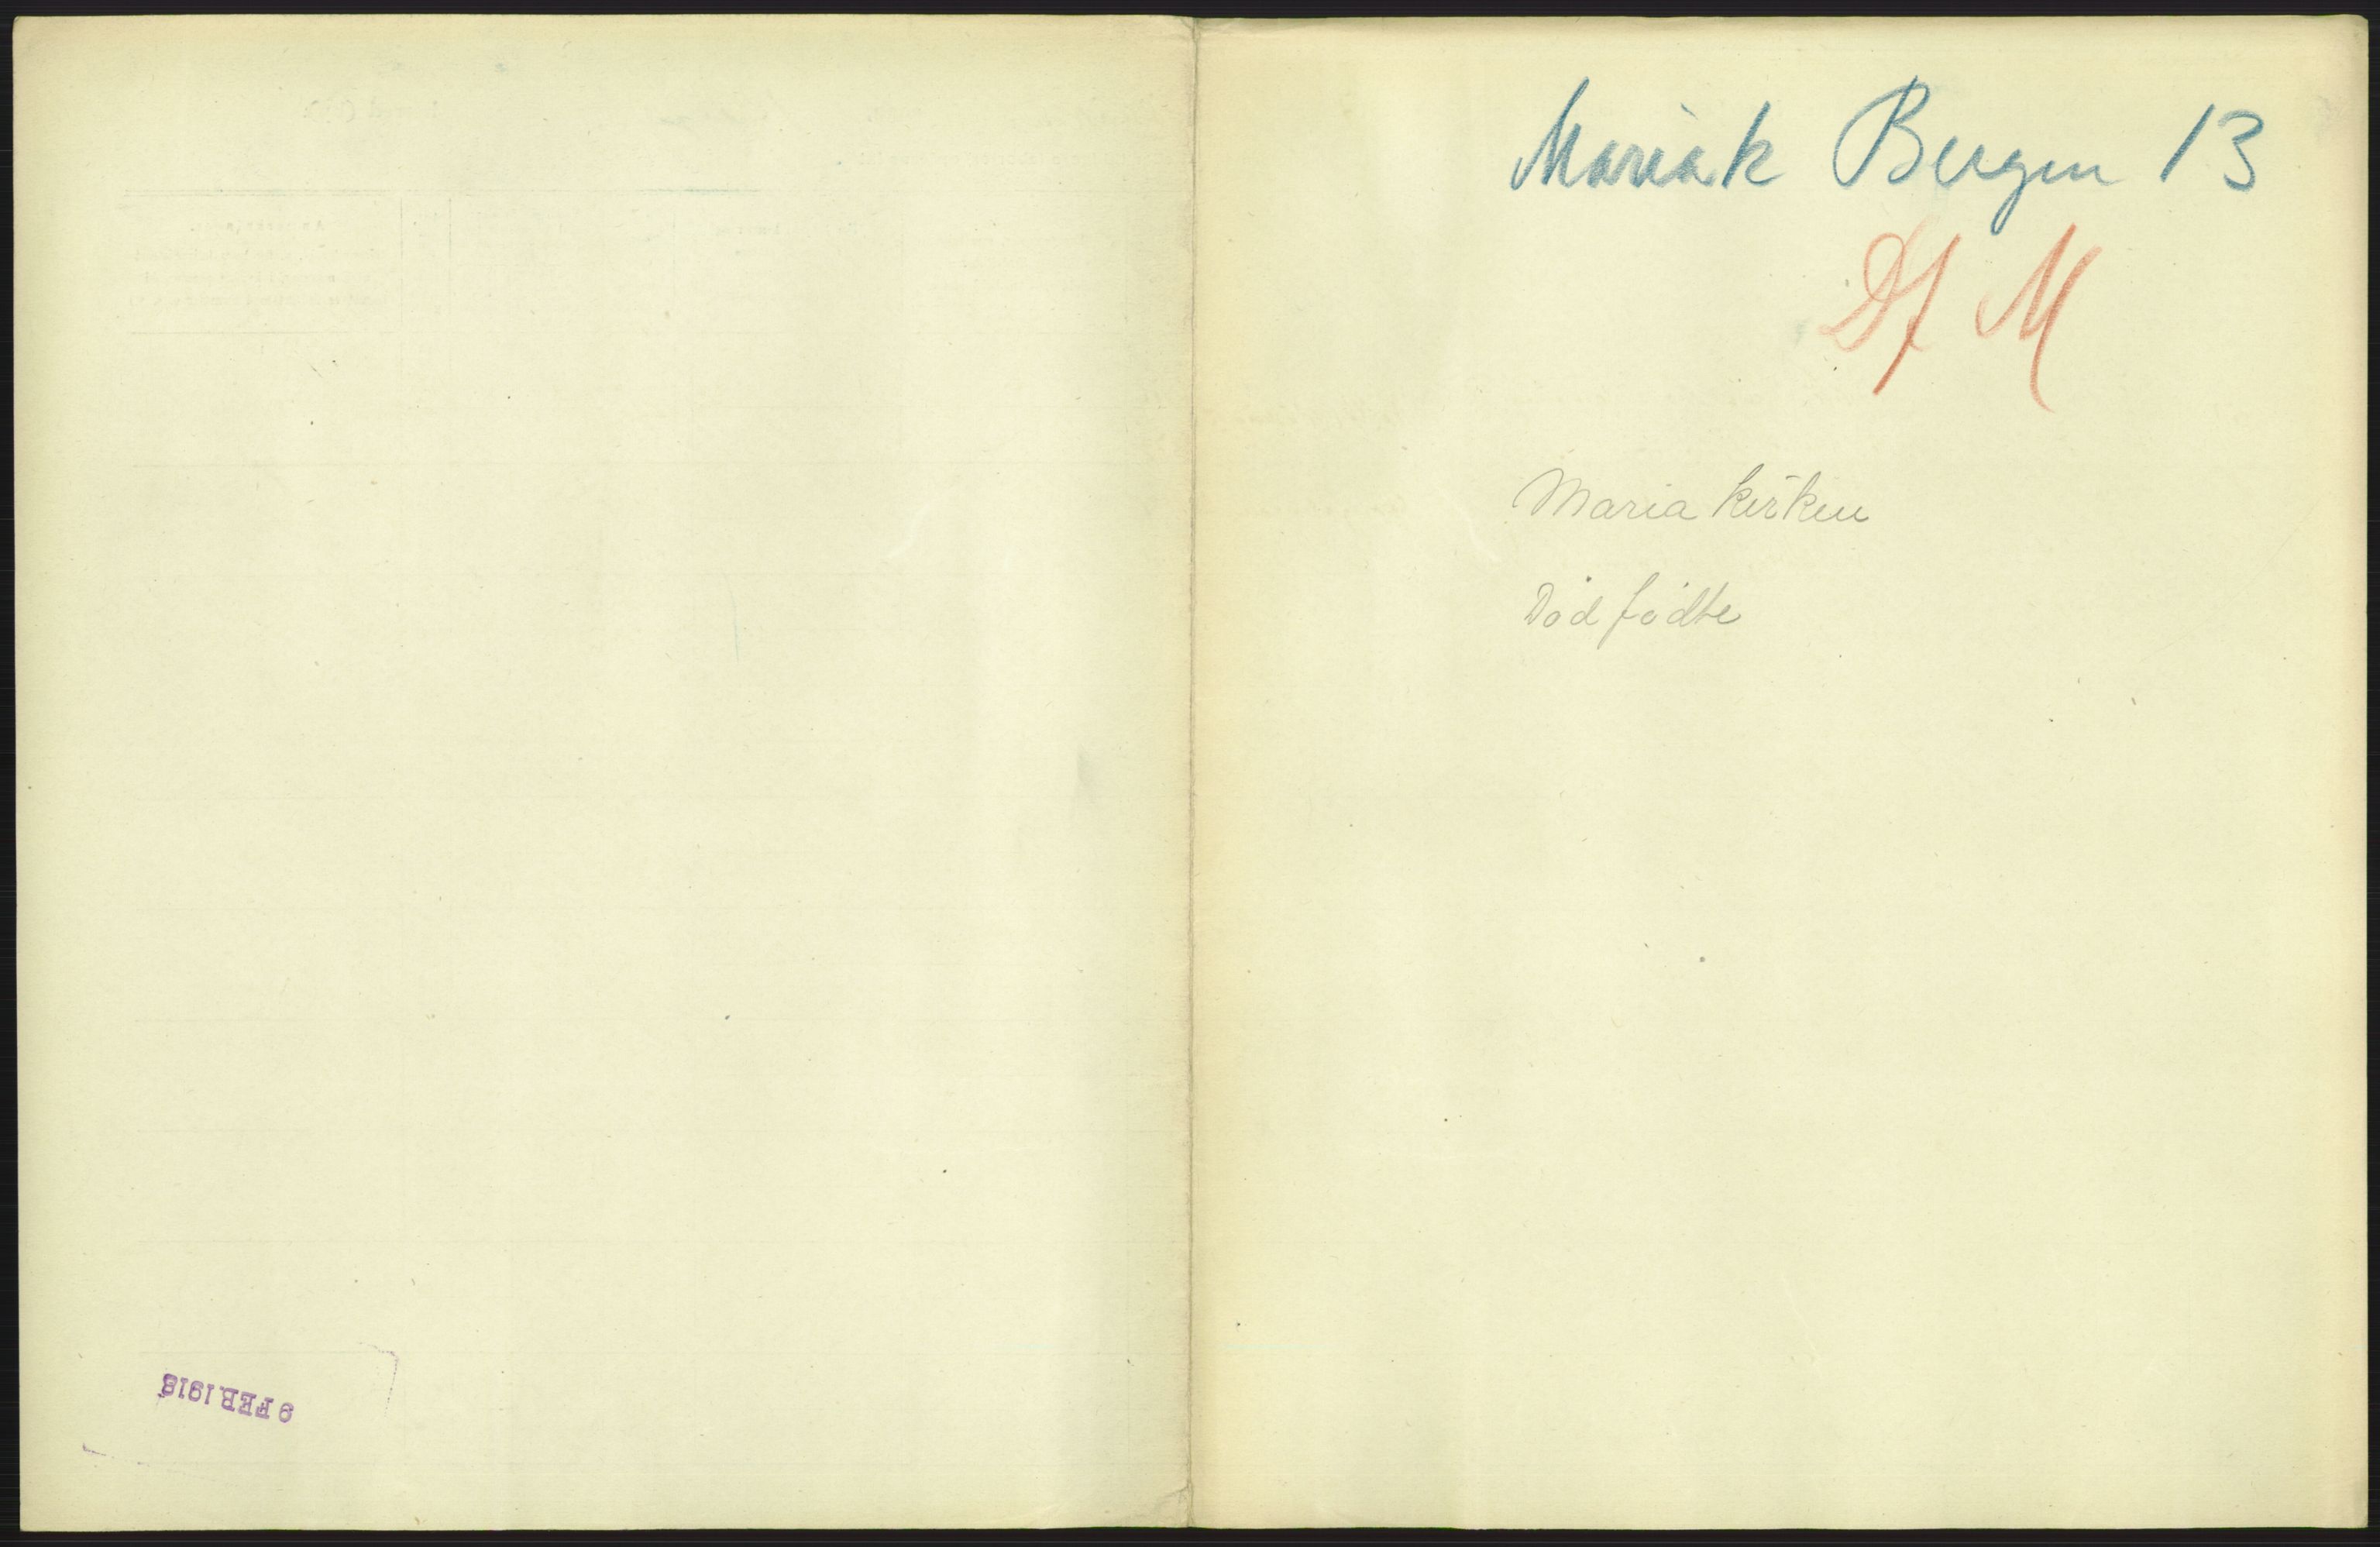 9 FEB. 1918
Maria k Bergen 13
Df M
Maria kirken
Dødfødte